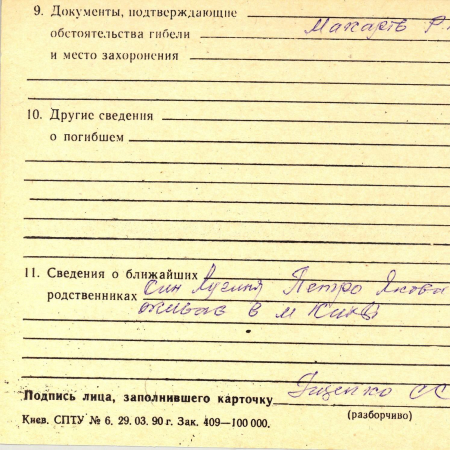 9. Документы, подтверждающие
обстоятельства гибели
и место захоронения
10. Другие сведения
о погибшем
11. Сведения о ближайших
родственниках Син Петро
в м Київ
Подпись лица, заполнившего карточку
(разборчиво)
Киев. СПТУ № 6. 29. 03. 90 г. Зак. 409—100 000.